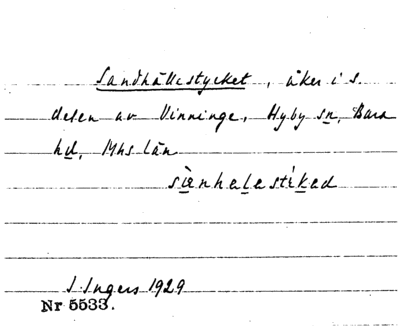 Sandhållestycket, åker i s.
delen av Vinninge, Hyby sn, Bara
hd, Mhs län
sìɐnhelestíked
I. Ingers 1929
Nr 5533.